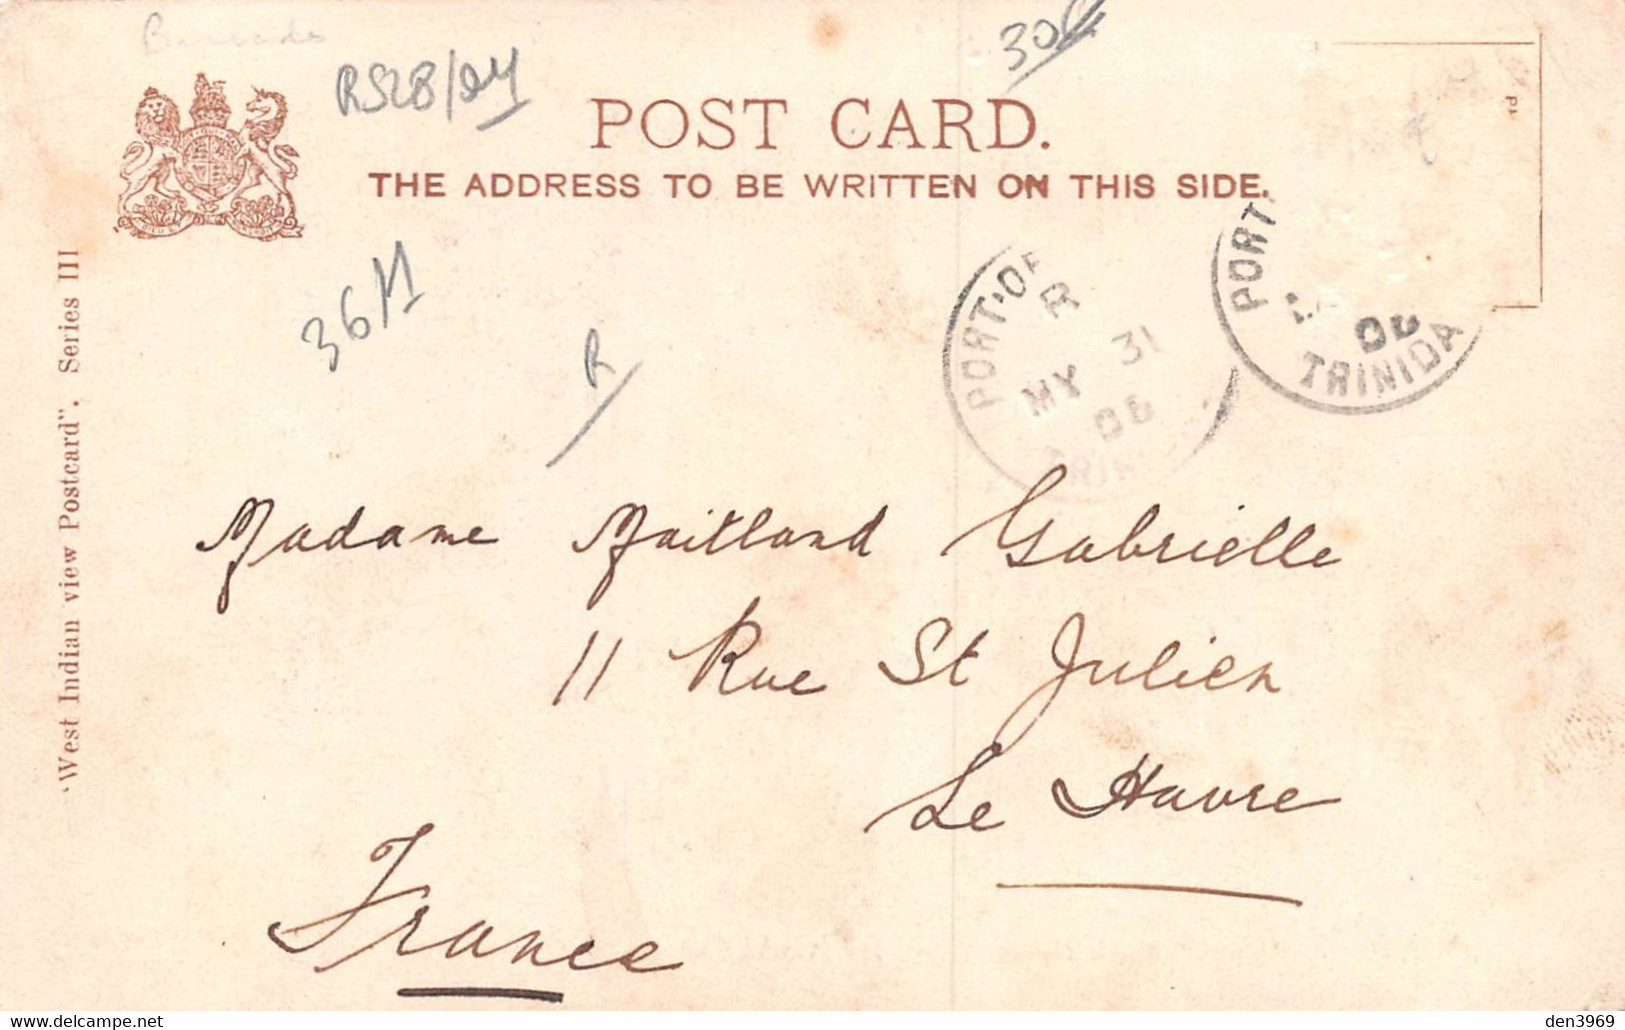 RS28/24
30€
POST CARD.
THE ADDRESS TO BE WRITTEN ON THIS SIDE.
36/1
R
"West Indian view Postcard". Series III
PORT-OF
R
MY 31
06
TRIN
PORT
06
TRINIDA
Madame Maitland Gabrielle
11 Rue St Julien
Le Havre
France
den3969